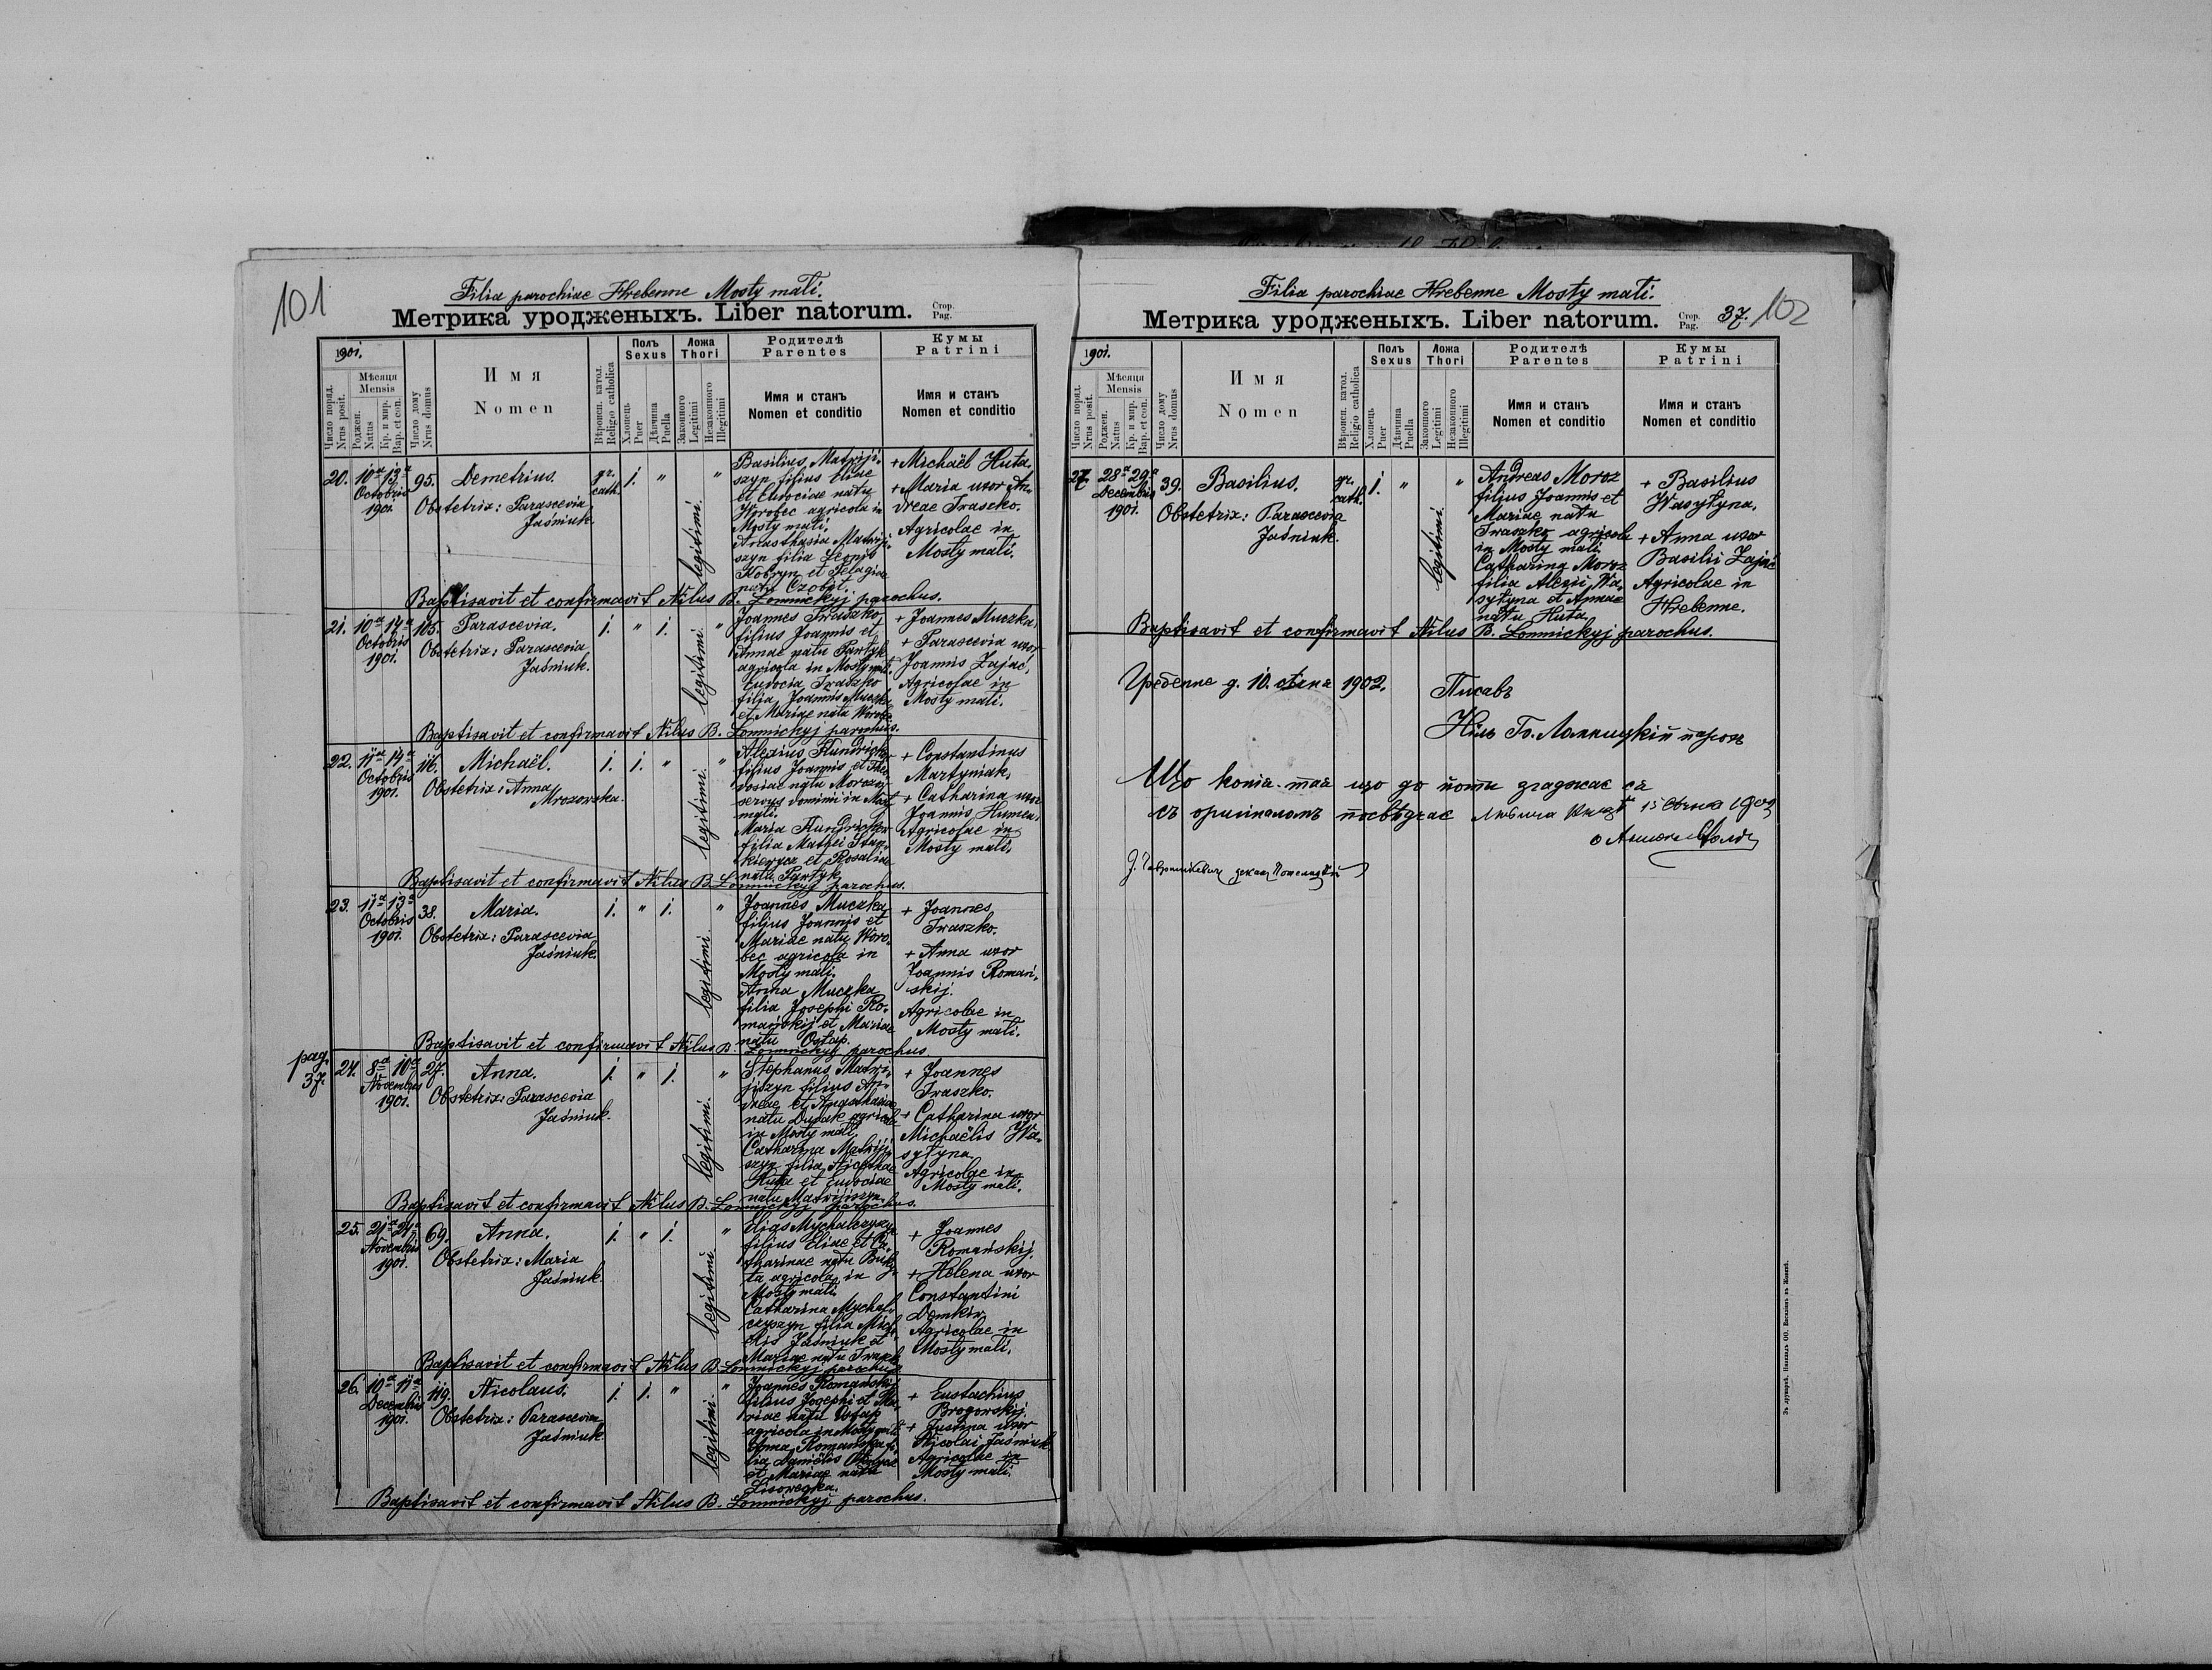 101
Filia parochiae Hrebenne Mosty mali.
Метрика уродженыхъ. Liber natorum.
Стор.
Pag.
1901.
Число поряд.
Nrus posit.
Мѣсяця
Mensis
Роджен.
Natus
Кр. и мир.
Bap. et con.
Число дому
Nrus domus
Имя
Nomen
Вѣроисп. катол.
Religio catholica
Полъ
Sexus
Хлопець
Puer
Дѣвчина
Puella
Ложа
Thori
Законного
Legitimi
Незаконного
Illegitimi
Родителѣ
Parentes
Имя и станъ
Nomen et conditio
Кумы
Patrini
Имя и станъ
Nomen et conditio
20. 10a 13a 95. Demetrius. gr. 1. " "
Octobris cath.
1901. Obstetrix: Parascevia
Jaśniuk.
legitimi.
Basilius Matwiji-
szyn filius Eliae
et Eudociae natu
Worobec agricola in
Mosty mali.
Anasthasia Matwiji-
szyn filia Leonis
Kobryn et Pelagiae
natu Czobit.
+ Michaël Huta.
+ Maria uxor An-
dreae Iraszko.
Agricolae in
Mosty mali.
Baptisavit et confirmavit Nilus B. Lomnickyj parochus.
21. 10a 14a 105. Parascevia. 1. " 1. "
Octobris
1901. Obstetrix: Parascevia
Jaśniuk.
legitimi.
Joannes Iraszko
filius Joannis et
Annae natu Pantyk
agricola in Mosty mali.
Eudocia Iraszko
filia Joannis Muczka
et Mariae natu Worobec
+ Joannes Muczka.
+ Parascevia uxor
Joannis Zajać.
Agricolae in
Mosty mali.
Baptisavit et confirmavit Nilus B. Lomnickyj parochus.
22. 11a 14a 116. Michaël. 1. 1. " "
Octobris
1901. Obstetrix: Anna
Mrozowska.
legitimi.
Alexius Kundrick
filius Joannis et Theo-
dosiae natu Moroz
servus dominii in Mosty
mali.
Maria Kundrick
filia Mathei Stan-
kiewycz et Rosaliae
natu Pantyk
+ Constantinus
Martyniak.
+ Catharina uxor
Joannis Humen.
Agricolae in
Mosty mali.
Baptisavit et confirmavit Nilus B. Lomnickyj parochus.
23. 11a 13a 38. Maria. 1. " 1. "
Octobris
1901. Obstetrix: Parascevia
Jaśniuk.
legitimi.
Joannes Muczka
filius Joannis et
Mariae natu Woro-
bec agricola in
Mosty mali.
Anna Muczka
filia Josephi Ro-
mańskij et Mariae
natu Ostap.
+ Joannes
Iraszko.
+ Anna uxor
Joannis Romań-
skij.
Agricolae in
Mosty mali.
Baptisavit et confirmavit Nilus B. Lomnickyj parochus.
pag.
37.
24. 8a 10a 27. Anna. 1. " 1. "
Novembris
1901. Obstetrix: Parascevia
Jaśniuk.
legitimi.
Stephanus Matwi-
jiszyn filius An-
dreae et Anasthasiae
natu Dudak agricola
in Mosty mali.
Catharina Matwiji-
szyn filia Nicolai
Huta et Eudociae
natu Matwijiszyn.
+ Joannes
Iraszko.
+ Catharina uxor
Michaëlis Wa-
sytyna
Agricolae in
Mosty mali.
Baptisavit et confirmavit Nilus B. Lomnickyj parochus.
25. 21a 24a 69. Anna. 1. " 1. "
Novembris
1901. Obstetrix: Maria
Jaśniuk.
legitimi.
Elias Mychalczyszyn
filius Eliae et Ca-
tharinae natu Buk-
ta agricola in
Mosty mali.
Catharina Mychal-
czyszyn filia Micha-
elis Jaśniuk et
Mariae natu Iraszko
+ Joannes
Romańskij.
+ Helena uxor
Constantini
Demkiw.
Agricolae in
Mosty mali.
Baptisavit et confirmavit Nilus B. Lomnickyj parochus.
26. 10a 11a 119. Nicolaus. 1. 1. " "
Decembris
1901. Obstetrix: Parascevia
Jaśniuk.
legitimi.
Joannes Romańskij
filius Josephi et Ma-
riae natu Ostap
agricola in Mosty mali.
Anna Romańska fi-
lia Danielis
et Mariae natu
+ Eustachius
Brogowskij.
+ Justina uxor
Nicolai Jaśniuk
Agricolae in
Mosty mali.
Baptisavit et confirmavit Nilus B. Lomnickyj parochus.
Filia parochiae Hrebenne Mosty mali.
Метрика уродженыхъ. Liber natorum.
Стор.
Pag.
37. 102
1901.
Число поряд.
Nrus posit.
Мѣсяця
Mensis
Роджен.
Natus
Кр. и мир.
Bap. et con.
Число дому
Nrus domus
Имя
Nomen
Вѣроисп. катол.
Religio catholica
Полъ
Sexus
Хлопець
Puer
Дѣвчина
Puella
Ложа
Thori
Законного
Legitimi
Незаконного
Illegitimi
Родителѣ
Parentes
Имя и станъ
Nomen et conditio
Кумы
Patrini
Имя и станъ
Nomen et conditio
27. 28a 29a 39. Basilius. gr. 1. " "
Decembris cath.
1901. Obstetrix: Parascevia
Jaśniuk.
legitimi.
Andreas Moroz
filius Joannis et
Mariae natu
Iraszko agricola
in Mosty mali.
Catharina Moroz
filia Alexii Wa-
sytyna et Annae
natu Huta
+ Basilius
Wasytyna.
+ Anna uxor
Basilii Zajać
Agricolae in
Hrebenne.
Baptisavit et confirmavit Nilus B. Lomnickyj parochus.
Гребенне д. 10. січня 1902. Писавъ
Нилъ Б. Ломницкій парох
Що копія тая що до йоти згаджає ся
съ оригіналомъ посвѣдчає 15 Січня 1902